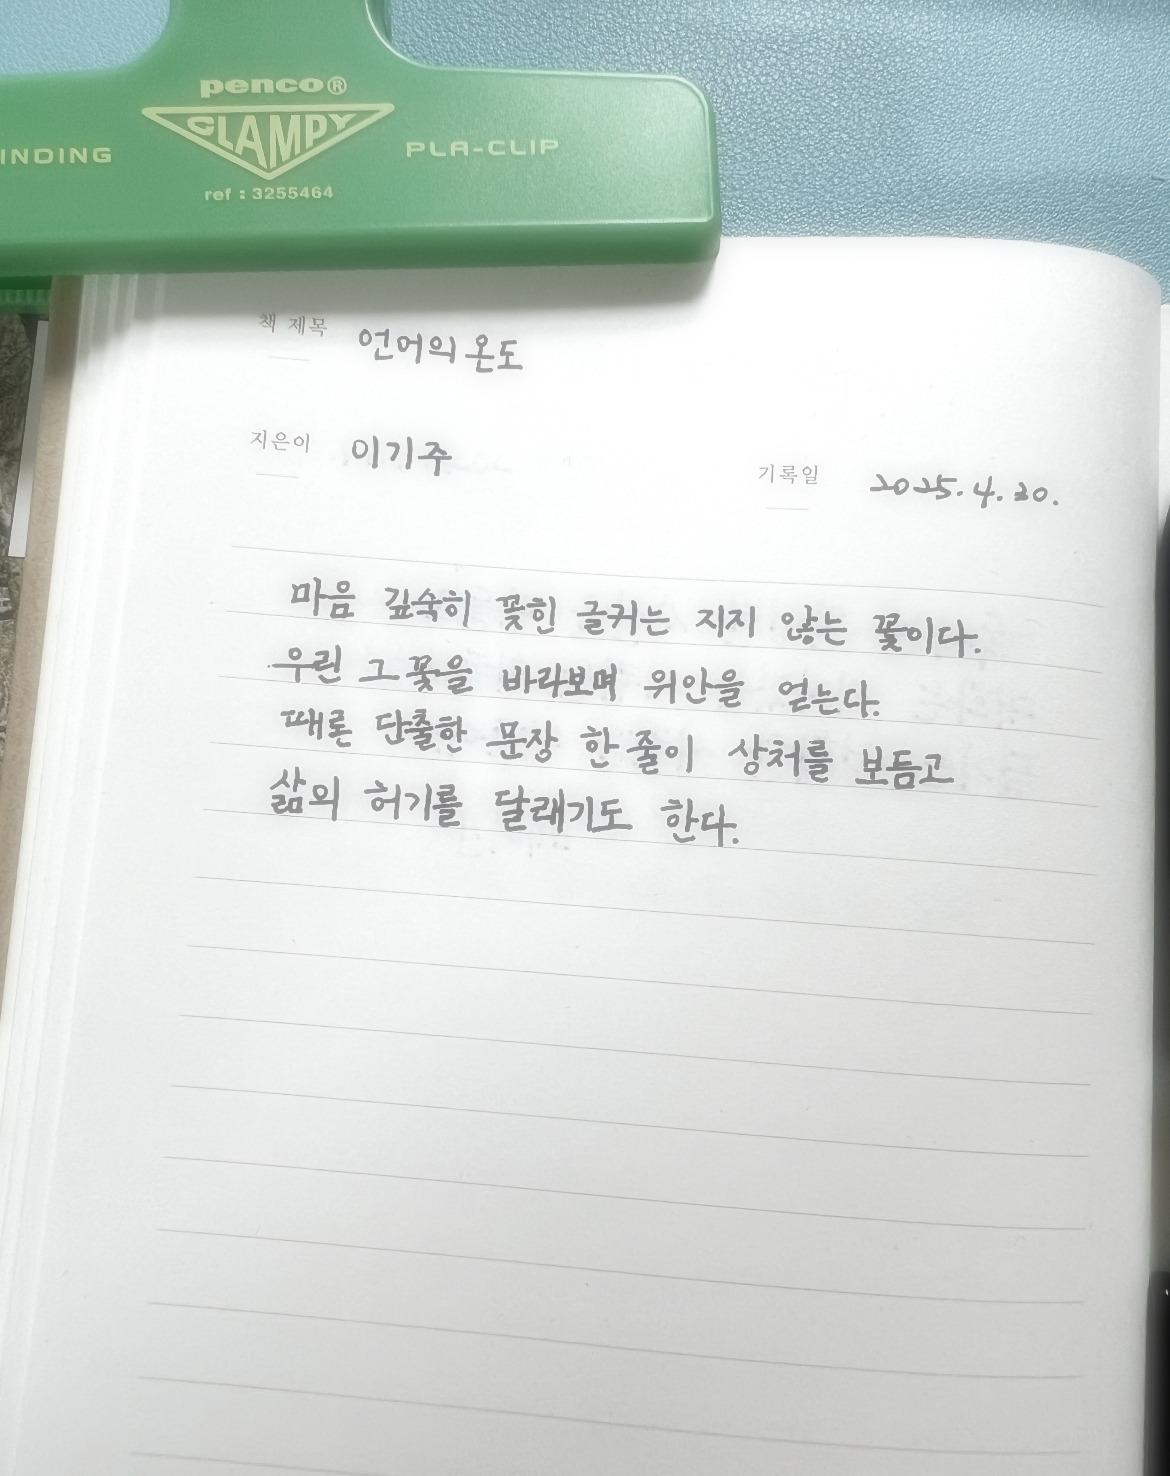 penco®
CLAMPY
INDING
PLA-CLIP
ref : 3255464
책 제목 언어의 온도
지은이 이기주
기록일 2025. 4. 20.
마음 깊숙히 꽂힌 글귀는 지지 않는 꽃이다.
우린 그 꽃을 바라보며 위안을 얻는다.
때론 단출한 문장 한 줄이 상처를 보듬고
삶의 허기를 달래기도 한다.